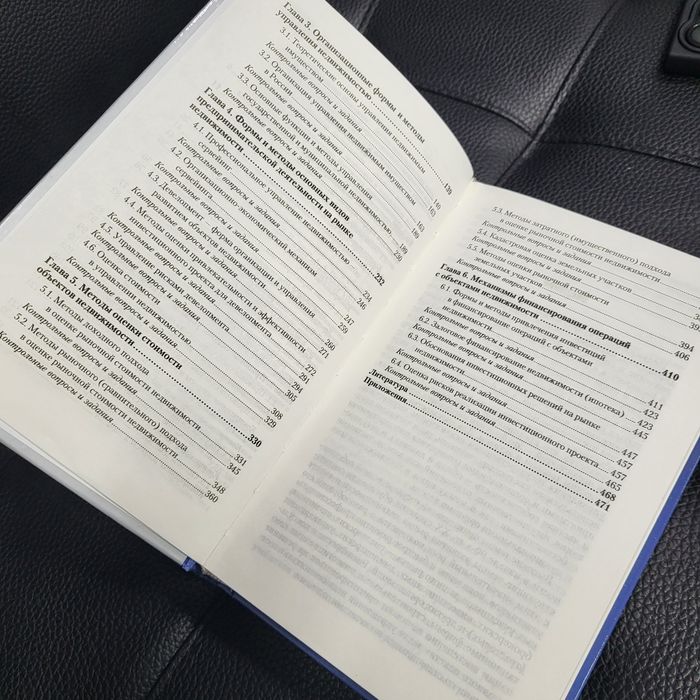 Глава 3. Организационные формы и методы
управления недвижимостью
3.1. Теоретические основы управления недвижимым
имуществом
Контрольные вопросы и задания
3.2. Организация управления недвижимым имуществом
в России
Контрольные вопросы и задания
3.3. Основные функции и методы управления
государственной и муниципальной недвижимостью
Контрольные вопросы и задания
Глава 4. Формы и методы основных видов
предпринимательской деятельности на рынке
недвижимости 232
4.1. Профессиональное управление недвижимостью —
сервейинг 234
Контрольные вопросы и задания 246
4.2. Организационно-экономический механизм
сервейинга 247
Контрольные вопросы и задания 259
4.3. Девелопмент – форма организации и управления
развитием объектов недвижимости 260
Контрольные вопросы и задания 271
4.4. Методы оценки привлекательности и эффективности
инвестиционного проекта для девелопмента 272
Контрольные вопросы и задания 291
4.5. Управление рисками девелопмента
Контрольные вопросы и задания 305
4.6. Оценка стоимости
в управлении недвижимостью 308
Контрольные вопросы и задания 329
Глава 5. Методы оценки стоимости
объектов недвижимости 330
5.1. Методы доходного подхода
в оценке рыночной стоимости недвижимости 331
Контрольные вопросы и задания 345
5.2. Методы рыночного (сравнительного) подхода
в оценке рыночной стоимости недвижимости 348
Контрольные вопросы и задания 360
5.3. Методы затратного (имущественного) подхода
в оценке рыночной стоимости недвижимости
Контрольные вопросы и задания
5.4. Кадастровая оценка земельных участков
Контрольные вопросы и задания
5.5. Методы оценки рыночной стоимости
земельных участков 394
Контрольные вопросы и задания 406
Глава 6. Механизмы финансирования операций
с объектами недвижимости 410
6.1. Формы и методы привлечения инвестиций
в финансирование операций с объектами
недвижимости 411
Контрольные вопросы и задания 423
6.2. Залоговое финансирование недвижимости (ипотека) 423
Контрольные вопросы и задания 445
6.3. Обоснования инвестиционных решений на рынке
недвижимости 447
Контрольные вопросы и задания 457
6.4. Оценка рисков реализации инвестиционного проекта 457
Контрольные вопросы и задания 465
Литература 468
Приложения 471